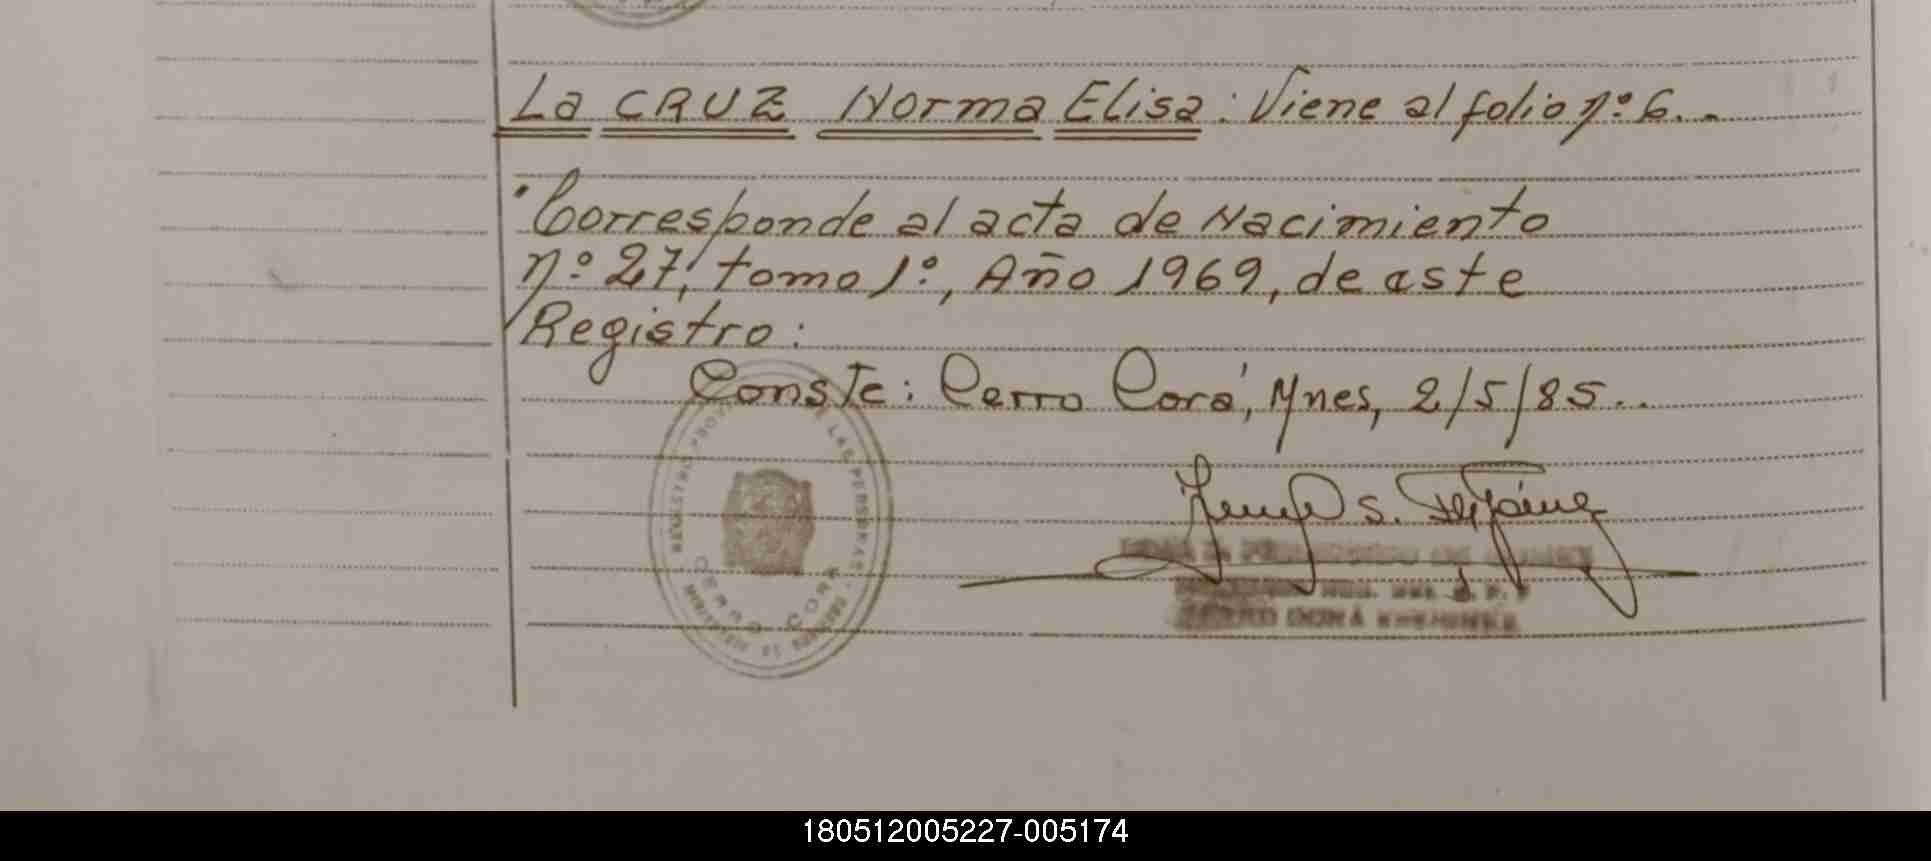 La CRUZ Norma Elisa: Viene al folio nº 6..
Corresponde al acta de Nacimiento
nº 27, tomo 1º, Año 1969, de este
Registro:
Conste: Cerro Corá, Mnes, 2/5/85..
REGISTRO PROV DE LAS PERSONAS
CERRO CORA
S.
CERRO CORÁ
180512005227-005174